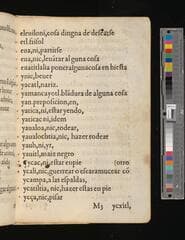 eleuiloni, cosa dingna de desearse
etl. frisol
ena, ni, partirse
ena, nic, leuātar al guna cosa
enatitlalia poner algunicosa en hiesta
ynic, beuer
ycatl, nariz.
yamancayotl. blādura de alguna cosa
yan. preposicion, en,
yatica, ni, estar yendo,
yaticac ni, idem
yaualoa, nic, rodear,
yauallochtia, nic, hazer rodear
yauh, ni, yr,
yauitl, maiz negro
ycac, ni, estar enpie (otro
ycali, nic, guerrear o escaramucear cō
ycampa, a las espaldas,
ycatiltia, nic, hazer estas en pie
ycça, nic, pisar
M3 ycxitl,